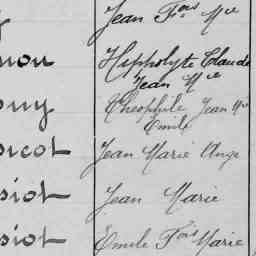 Jean Fois Mie
Hippolyte Claude
Jean Mie
Théophile Jean Mie
Emile
icot Jean Marie Ange
siot Jean Marie
siot Emile Fois Marie